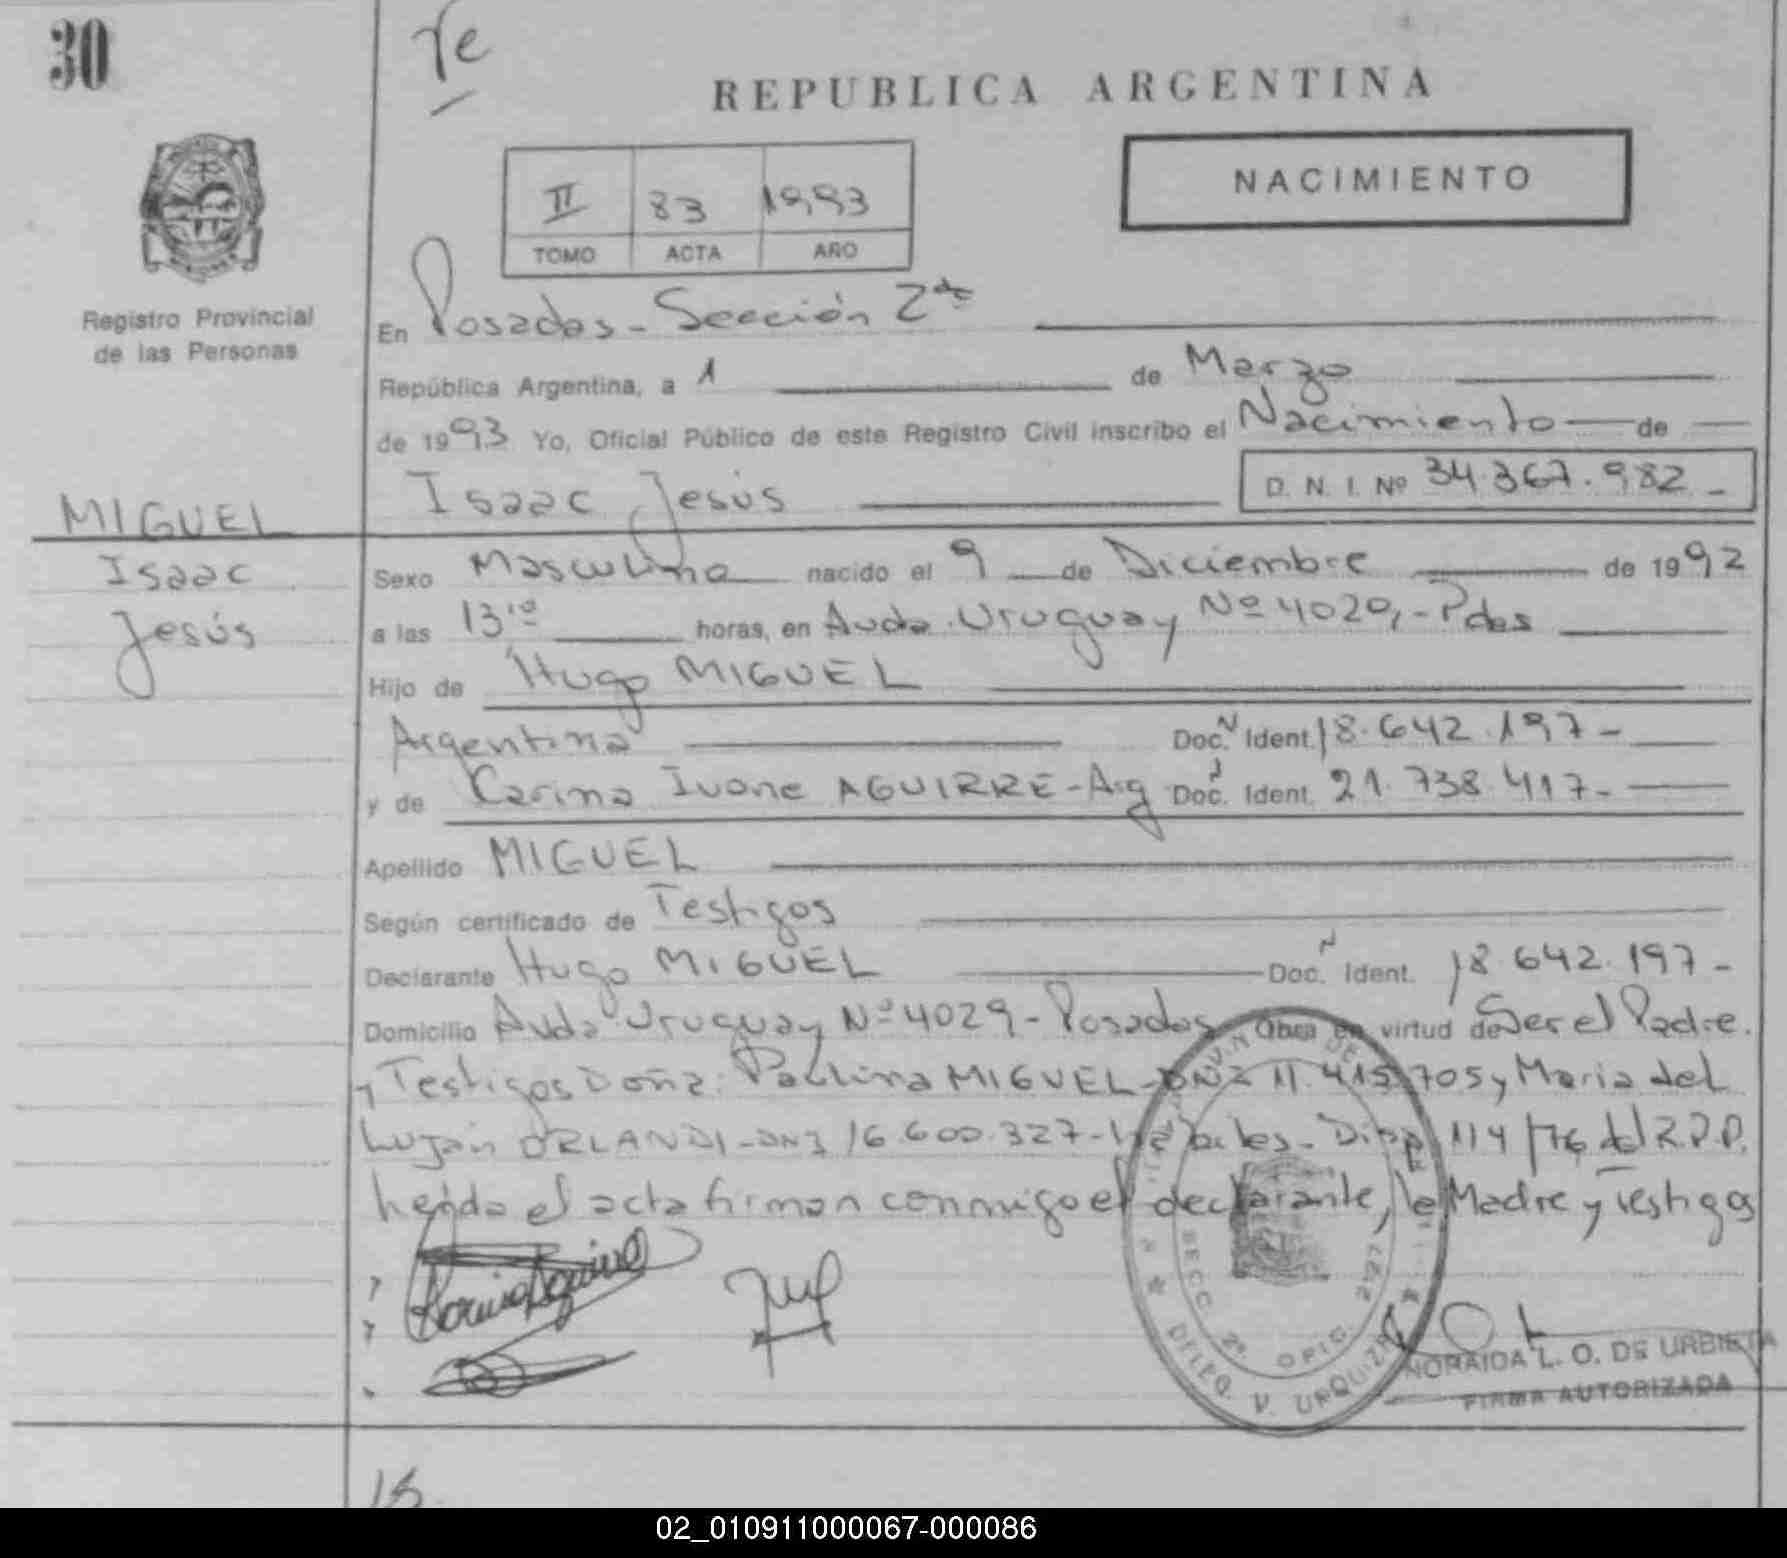 30
Te
REPUBLICA ARGENTINA
NACIMIENTO
II 83 1993
TOMO ACTA AÑO
Registro Provincial
de las Personas
En Posadas - Sección 2da
República Argentina, a 1 de Marzo
de 1993 Yo, Oficial Público de este Registro Civil inscribo el Nacimiento de
Isaac Jesús D. N. I. Nº 34.367.982 -
MIGUEL
Isaac
Jesús
Sexo Masculino nacido el 9 de Diciembre de 1992
a las 13 10 horas, en Avda. Uruguay Nº 4029,- Pdas
Hijo de Hugo MIGUEL
Argentina Doc. N Ident. 18.642.197 -
y de Carina Ivone AGUIRRE - Arg Doc. Ident. 21.738.417 -
Apellido MIGUEL
Según certificado de Testigos
Declarante Hugo MIGUEL Doc. N Ident. 18.642.197 -
Domicilio Avda. Uruguay Nº 4029 - Posadas Obra en virtud de Ser el Padre.
y Testigos Doña: Paulina MIGUEL - DNI 11.415.705 y Maria del
Luján ORLANDI - DNI 16.600.327 - Hábiles - Disp. 114/76 del R.P.P.
leída el acta firman conmigo el declarante, la Madre y testigos
Karina Aguirre
SECC. 2ª OFIC. 2127
DELEG. V. URQUIZA
NORAIDA L. O. DE URBIETA
FIRMA AUTORIZADA
15
02_010911000067-000086